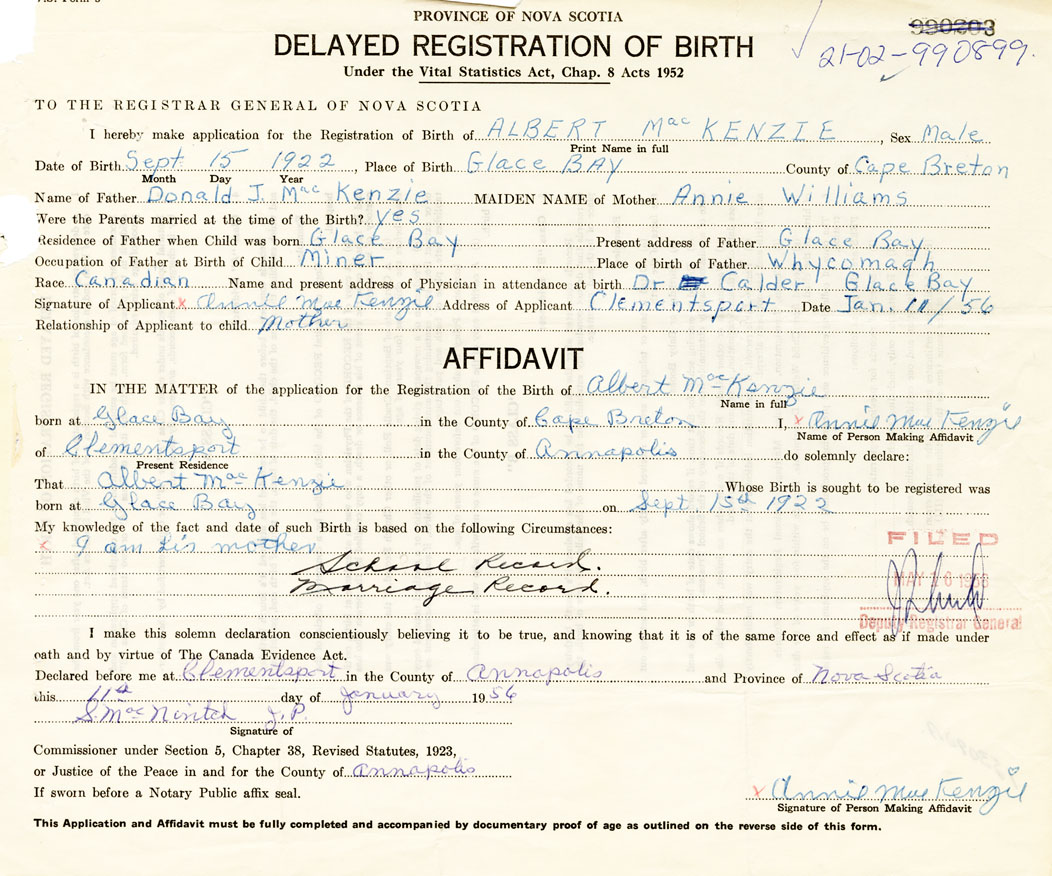 PROVINCE OF NOVA SCOTIA
990203
DELAYED REGISTRATION OF BIRTH
21-02-990899.
Under the Vital Statistics Act, Chap. 8 Acts 1952
TO THE REGISTRAR GENERAL OF NOVA SCOTIA
I hereby make application for the Registration of Birth of ALBERT MacKENZIE, Sex Male
Print Name in full
Date of Birth Sept 15 1922, Place of Birth Glace BAY County of Cape Breton
Month Day Year
Name of Father Donald J. MacKenzie MAIDEN NAME of Mother Annie Williams
Were the Parents married at the time of the Birth? yes
Residence of Father when Child was born Glace Bay Present address of Father Glace Bay
Occupation of Father at Birth of Child Miner Place of birth of Father Whycomagh
Race Canadian Name and present address of Physician in attendance at birth Dr Calder Glace Bay
Signature of Applicant x Annie MacKenzie Address of Applicant Clementsport Date Jan. 11/56
Relationship of Applicant to child Mother
AFFIDAVIT
IN THE MATTER of the application for the Registration of the Birth of Albert MacKenzie
Name in full
born at Glace Bay in the County of Cape Breton I, x Annie MacKenzie
Name of Person Making Affidavit
of Clementsport in the County of Annapolis do solemnly declare:
Present Residence
That Albert MacKenzie Whose Birth is sought to be registered was
born at Glace Bay on Sept. 15th 1922
My knowledge of the fact and date of such Birth is based on the following Circumstances:
x I am his mother
FILED
School Record.
MAY
Marriage Record.
Deputy Registrar General
I make this solemn declaration conscientiously believing it to be true, and knowing that it is of the same force and effect as if made under
oath and by virtue of The Canada Evidence Act.
Declared before me at Clementsport in the County of Annapolis and Province of Nova Scotia
this 11th day of January 1956
S. MacNintch J.P.
Signature of
Commissioner under Section 5, Chapter 38, Revised Statutes, 1923,
or Justice of the Peace in and for the County of Annapolis
If sworn before a Notary Public affix seal.
x Annie MacKenzie
Signature of Person Making Affidavit
This Application and Affidavit must be fully completed and accompanied by documentary proof of age as outlined on the reverse side of this form.